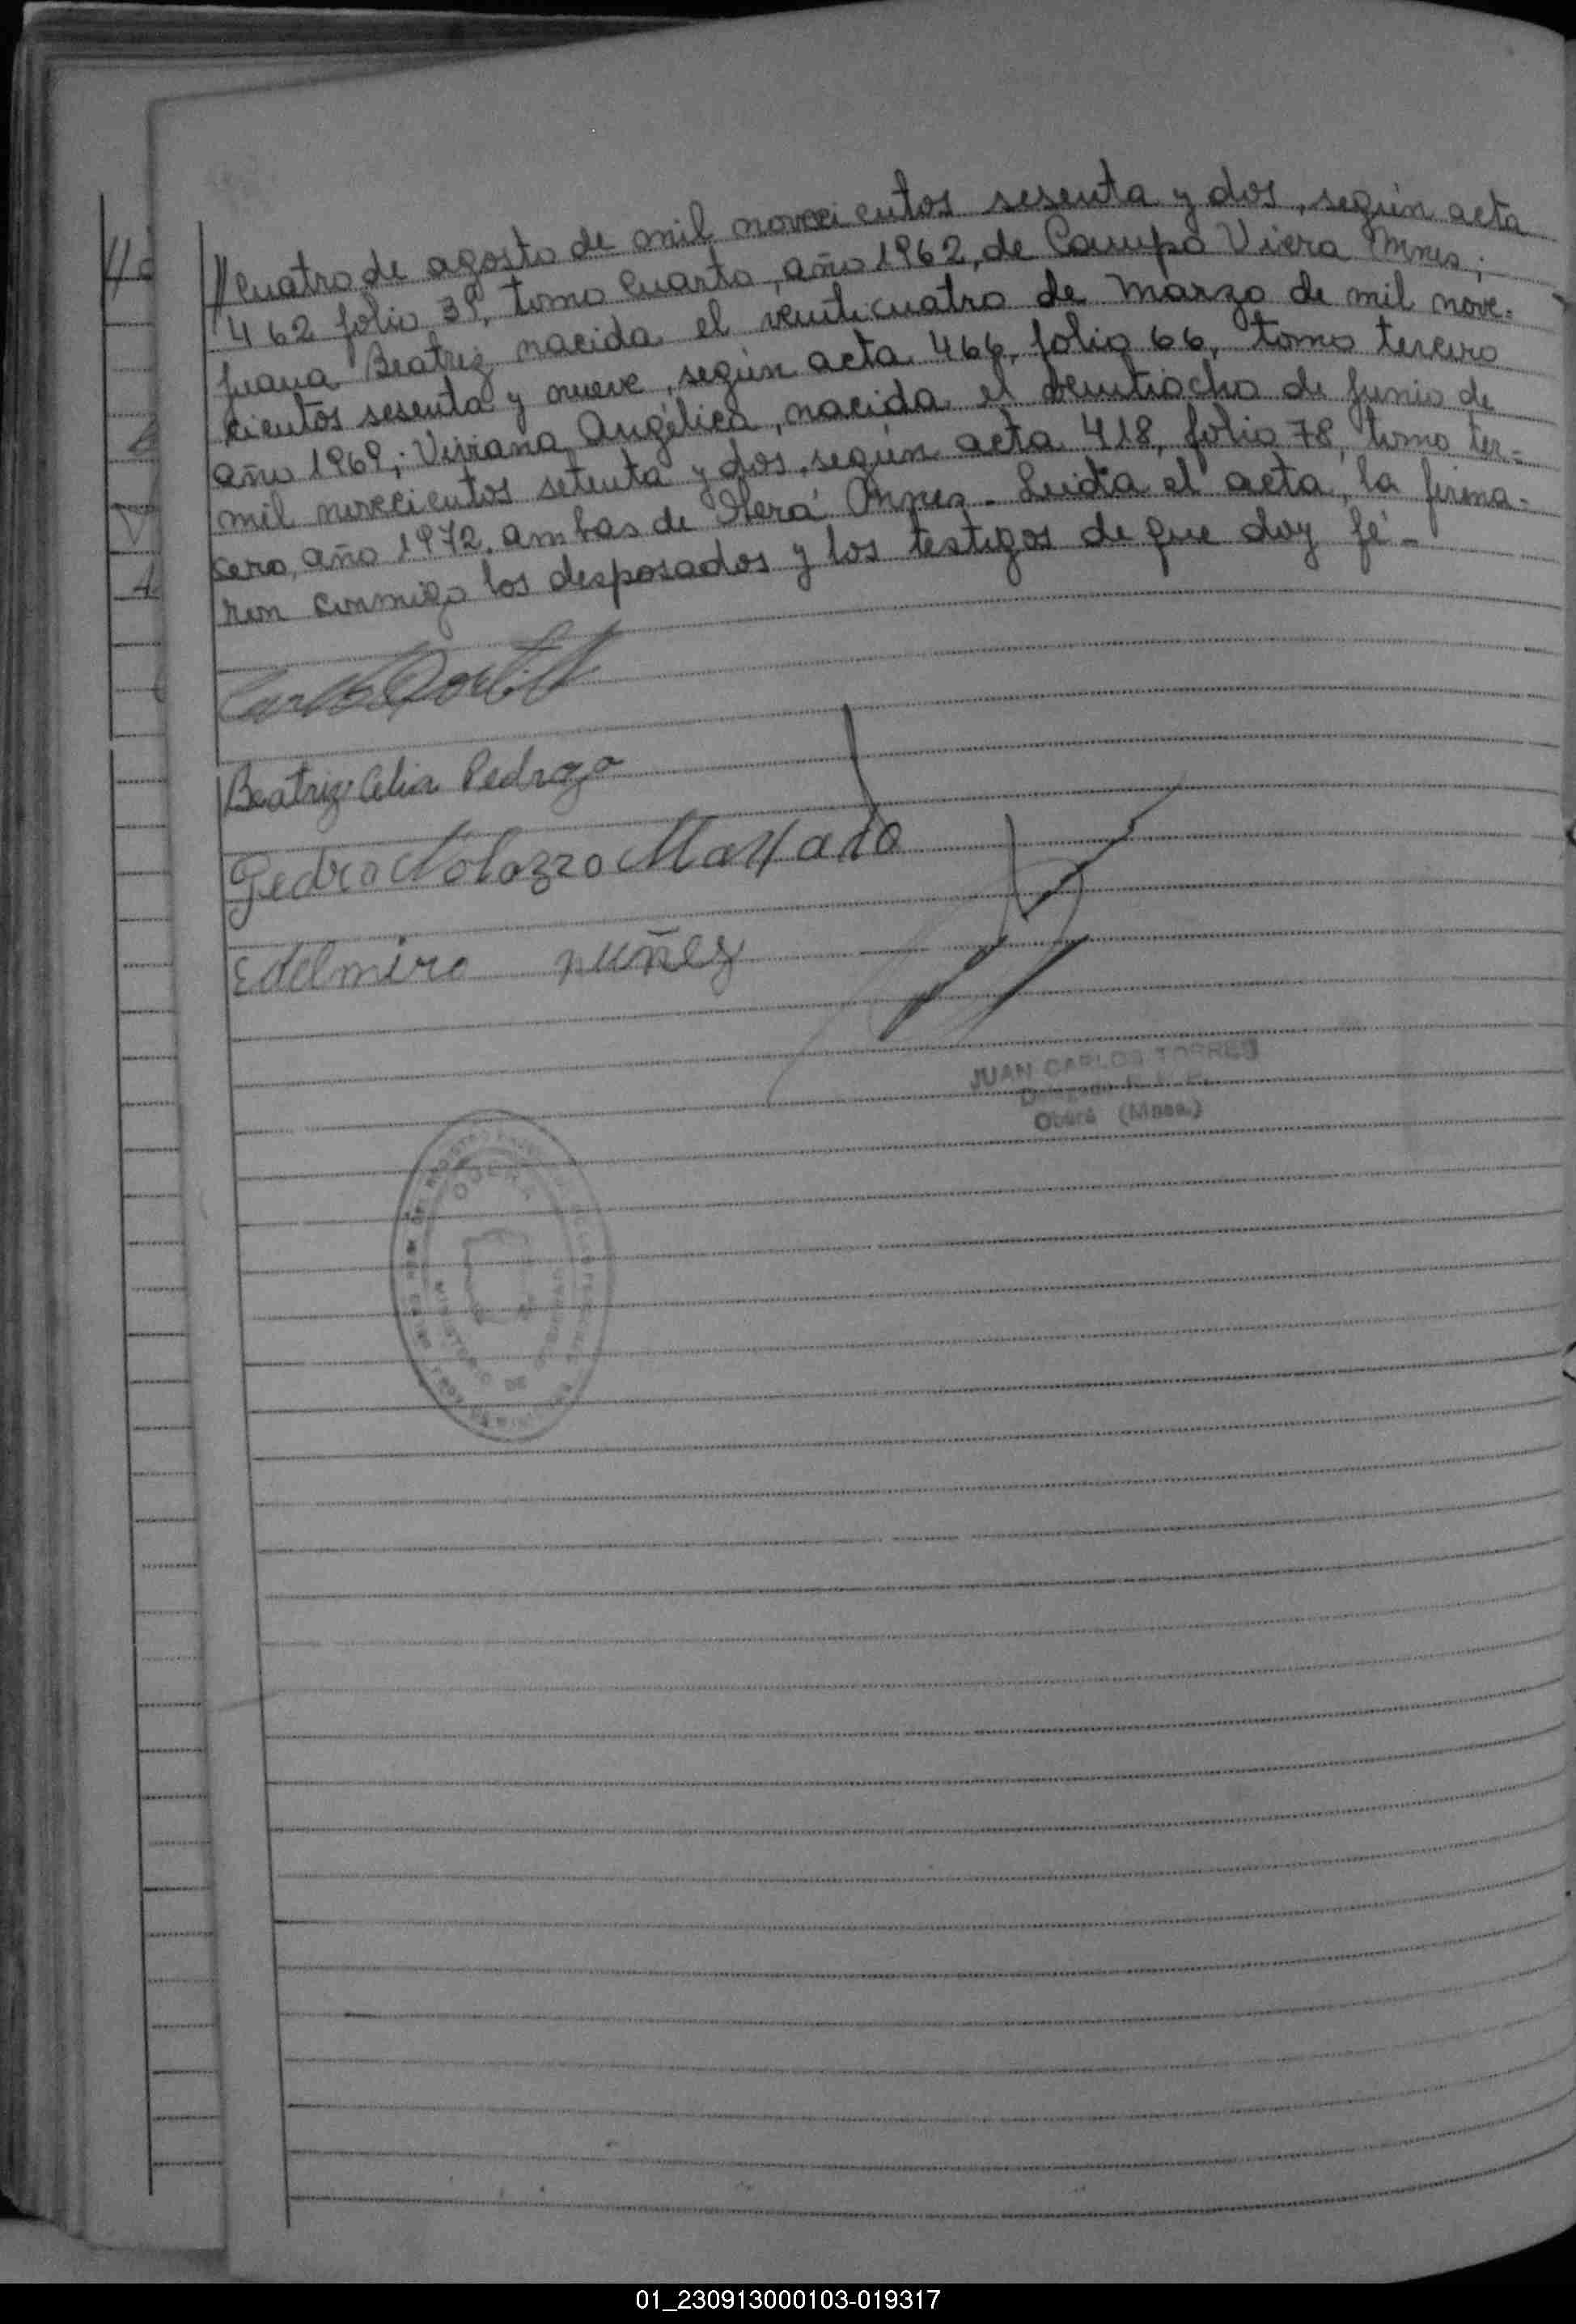 //Cuatro de agosto de mil novecientos sesenta y dos, según acta
462 folio 39, tomo Cuarto, año 1962, de Campo Viera Mnes;
Juana Beatriz nacida el veinticuatro de Marzo de mil nove-
cientos sesenta y nueve, según acta 466, folio 66, tomo tercero
año 1969; Viviana Angélica, nacida el veintiocho de Junio de
mil novecientos setenta y dos, según acta 418, folio 78, tomo ter-
cero, año 1972. ambas de Oberá Mnes - Leida el acta, la firma-
ron conmigo los desposados y los testigos de que doy fé -
Beatriz Celia Pedrozo
Pedro Nolazzo
Edelmiro nuñez
JUAN CARLOS TORRES
Oberá (Mnes.)
OBERA
MINISTERIO DE
01_230913000103-019317